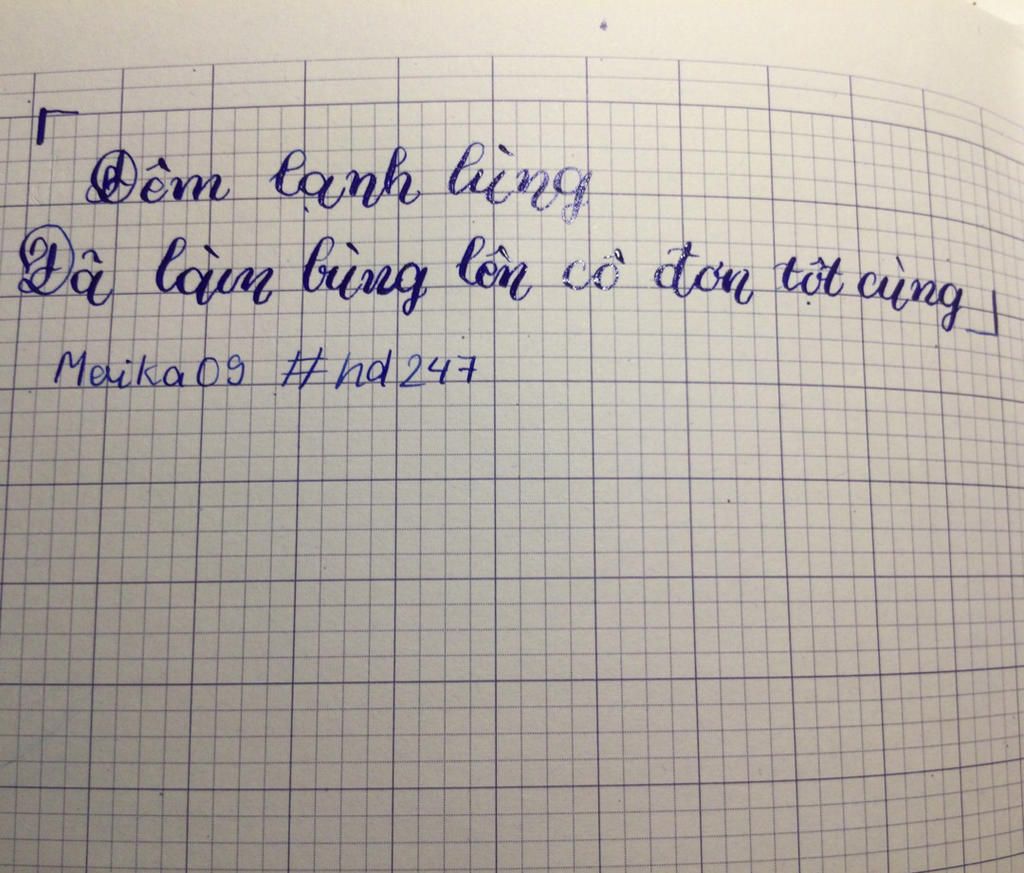 「Đêm lạnh lùng
Đã làm bùng lên cô đơn tột cùng」
Meika09 #hd247